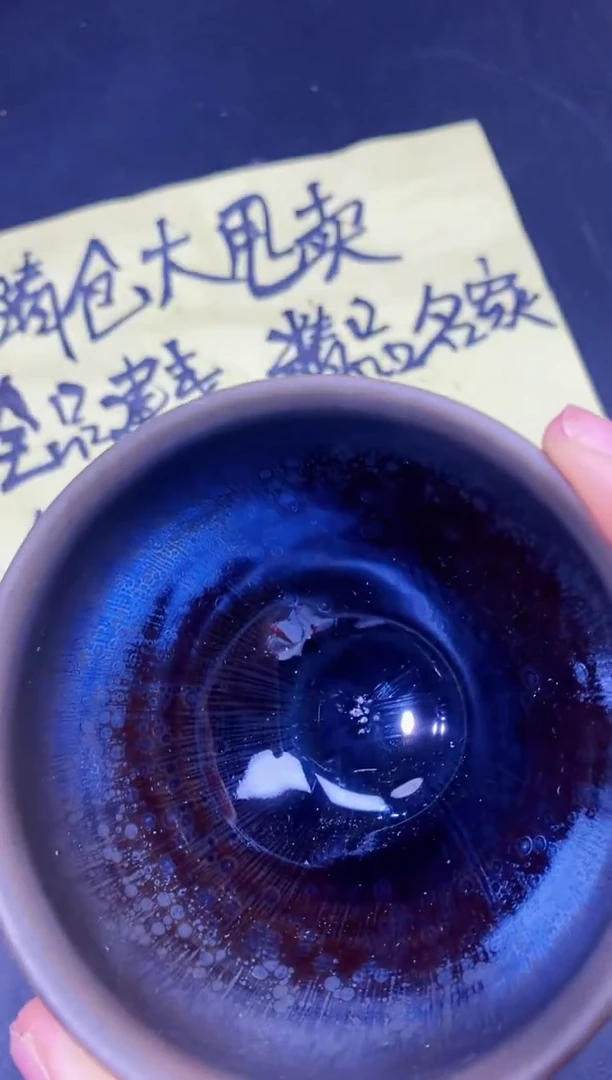 清仓大甩卖
全品建盏 精品名家